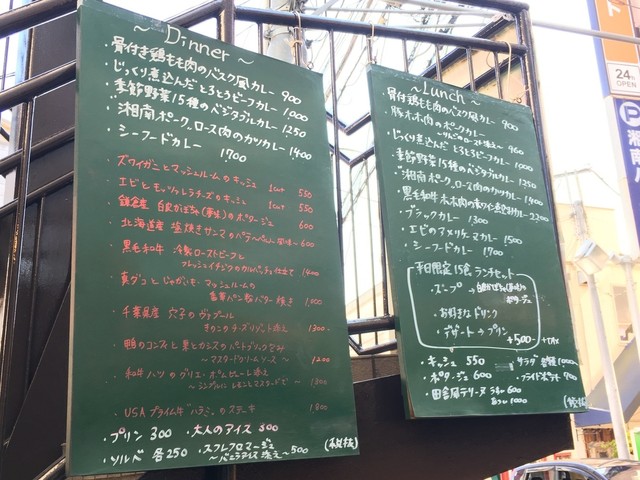 ~ Dinner ~
・骨付き鶏もも肉のバスク風カレー 900
・じっくり煮込んだとろとろビーフカレー 1000
・季節野菜15種のベジタブルカレー 1250
・湘南ポークロース肉のカツカレー 1400
・シーフードカレー 1700
・ズワイガニとマッシュルームのキッシュ 1cut 550
・エビとモッツァレラチーズのキッシュ 1cut 550
・鎌倉産 かぼちゃ のポタージュ 600
・北海道産 塩焼きサンマの 600
・黒毛和牛 冷製ローストビーフと
フレッシュイチジクのカルパッチョ仕立て 1400
・真ダコとじゃがいも・マッシュルームの
香草パン粉バター焼き 1,000
・千葉県産 穴子の
きのこのチーズリゾット添え 1300
・鴨のコンフィと栗とカシスのパートブリック包み
~マスタードクリームソース~ 1200
・和牛ハツのグリエ・ポムピューレ添え
~シンプルにレモンとマスタードで~ 1300
・USAプライム牛"ハラミ"のステーキ 1800
・プリン 300 ・大人のアイス 300
・ソルベ 各250 ・スフレフロマージュ
~バニラアイス添え~ 500
(税抜)
~ Lunch ~
・骨付鶏もも肉のバスク風カレー 900
・豚ホホ肉のポークカレー
900
・じっくり煮込んだとろとろビーフカレー 1000
・季節野菜15種のベジタブルカレー 1250
・湘南ポークロース肉のカツカレー 1400
・黒毛和牛ホホ肉の赤ワイン煮込みカレー 2200
・ブラックカレー 1300
・エビのアメリケーヌカレー 1500
・シーフードカレー 1700
平日限定15食 ランチセット
・スープ →
ポタージュ
・お好きなドリンク
・デザート → プリン
+500 +TAX
・キッシュ 550
・ポタージュ 600
・田舎風テリーヌ 600
1000
・サラダ 1000
・フライドポテト 700
(税抜)
24h
OPEN
P